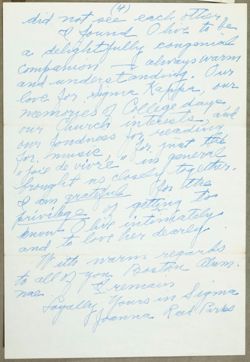 (4)
did not see each other.
I found Olive to be
a delightfully congenial
companion. I always warm
and understanding. Our
love for Sigma Kappa, our
memories of College days,
our Church interests, and
our fondness for reading
for music, for just the
"joie de vivre" in general
brought us closely together.
I am grateful for the
privilege of getting to
know Olive intimately
and to love her dearly.
With warm regards
to all of you Boston Alum-
nae I remain
Loyally Yours in Sigma
Joanna